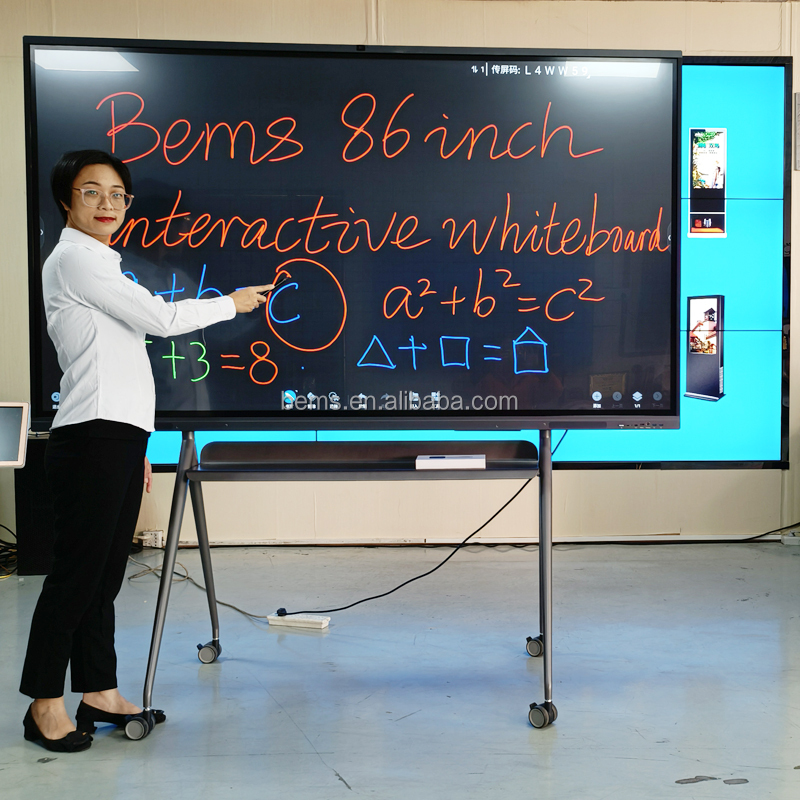 传屏码: L4WW5S
Bems 86 inch
interactive whiteboard
a+b=c a²+b²=c²
+3=8 △+□=
bems.en.alibaba.com